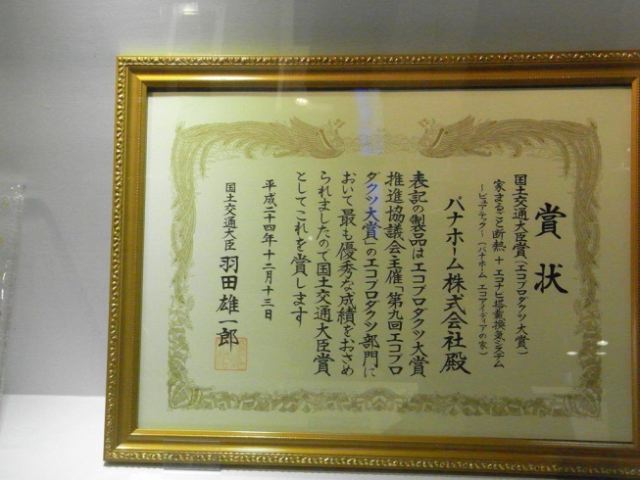 賞状
国土交通大臣賞(エコプロダクツ大賞)
家まるごと断熱+エコナビ搭載換気システム
~ピュアテック~(パナホーム エコアイディアの家)
パナホーム株式会社殿
表記の製品はエコプロダクツ大賞
推進協議会主催「第九回エコプロ
ダクツ大賞」のエコプロダクツ部門に
おいて最も優秀な成績をおさめ
られましたので国土交通大臣賞
としてこれを賞します
平成二十四年十二月十三日
国土交通大臣 羽田雄一郎